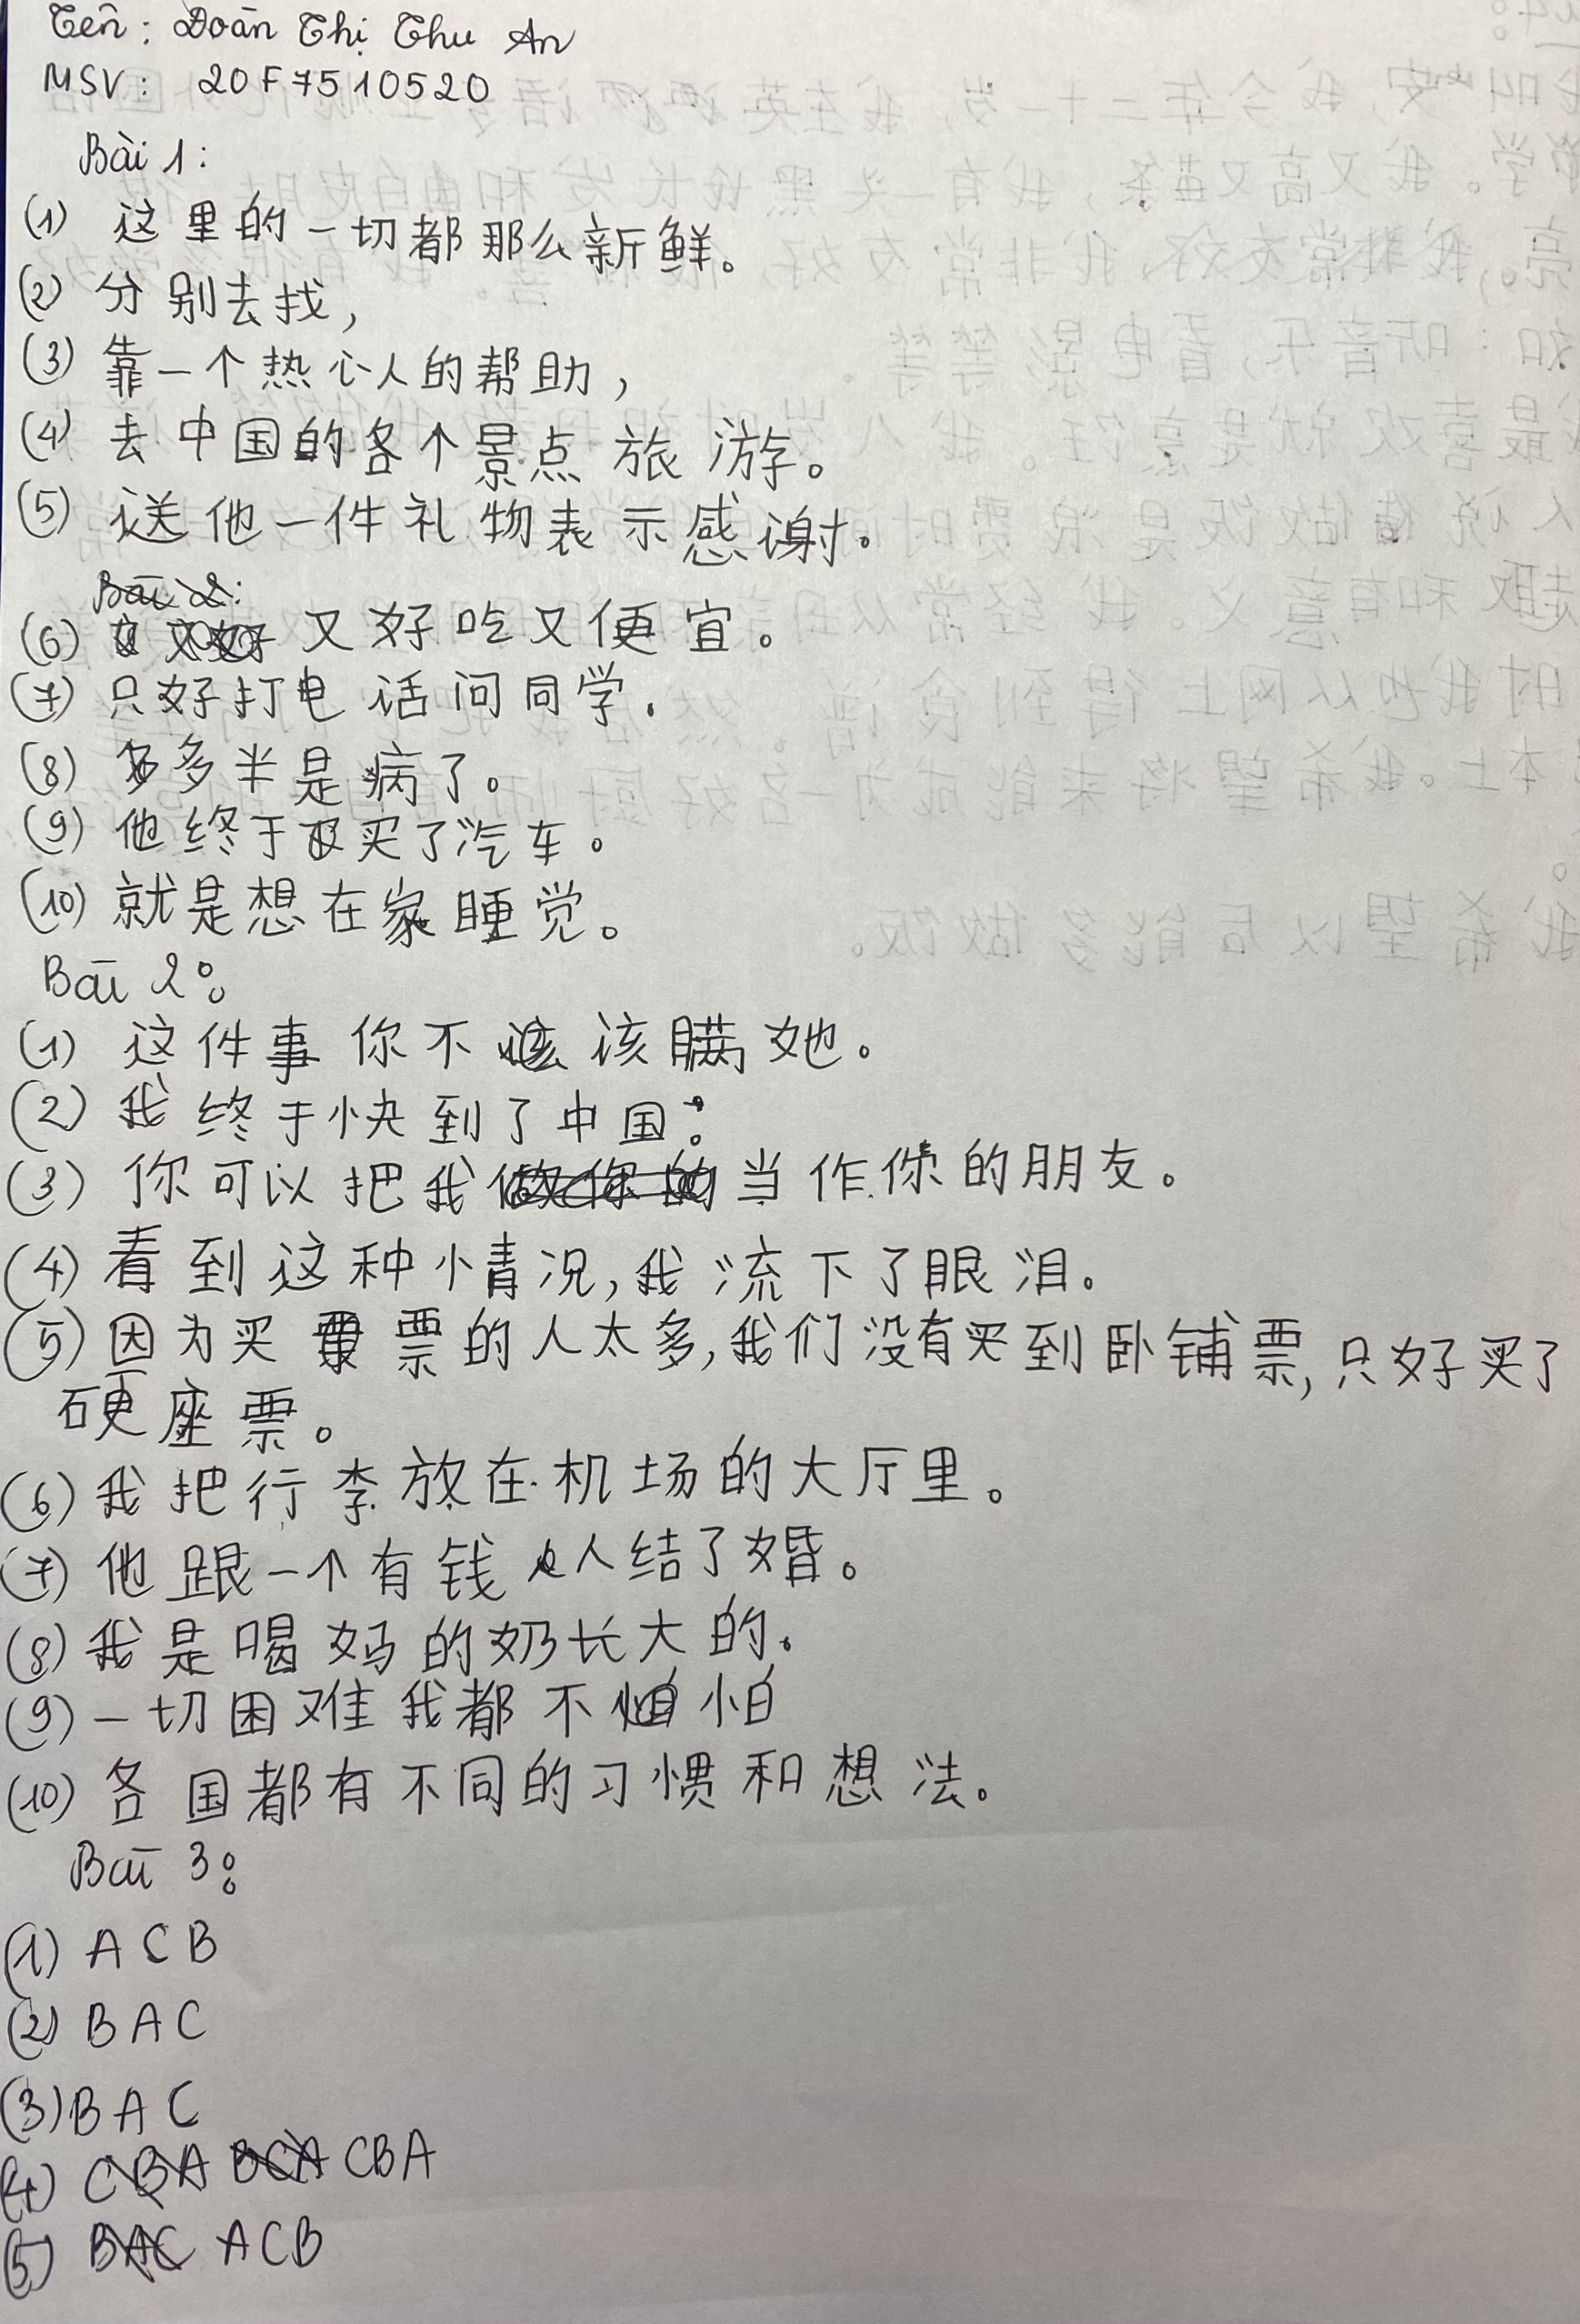 Tên: Đoàn Thị Thu An
MSV: 20F7510520
Bài 1:
(1) 这里的一切都那么新鲜。
(2) 分别去找,
(3) 靠一个热心人的帮助,
(4) 去中国的各个景点旅游。
(5) 送他一件礼物表示感谢。
Bài 2:
(6) 又好吃又便宜。
(7) 只好打电话问同学.
(8) 多半是病了。
(9) 他终于买了汽车。
(10) 就是想在家睡觉。
Bài 2:
(1) 这件事你不该瞒她。
(2) 我终于快到了中国。
(3) 你可以把我当作你的朋友。
(4) 看到这种情况,我流下了眼泪。
(5) 因为买票的人太多,我们没有买到卧铺票,只好买了
硬座票。
(6) 我把行李放在机场的大厅里。
(7) 他跟一个有钱人结了婚。
(8) 我是喝妈的奶长大的.
(9) 一切困难我都不怕
(10) 各国都有不同的习惯和想法。
Bài 3:
(1) ACB
(2) BAC
(3) BAC
(4) CBA BCA CBA
(5) BAC ACB